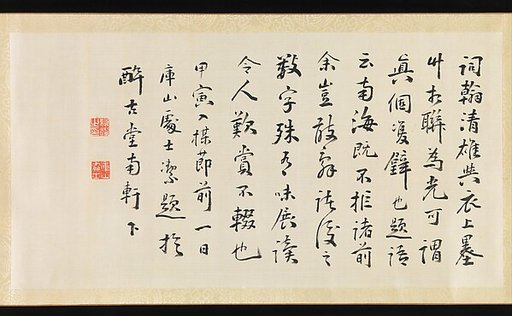 詞翰清雄與衣上墨
竹相聯為光可謂
真個雙璧也題語
云南海既不拒諸前
余豈敢辭諸後之
數字殊有味展讀
令人歎賞不輟也
甲寅人楳節前一日
庫山處士潔題於
醉古堂南軒下